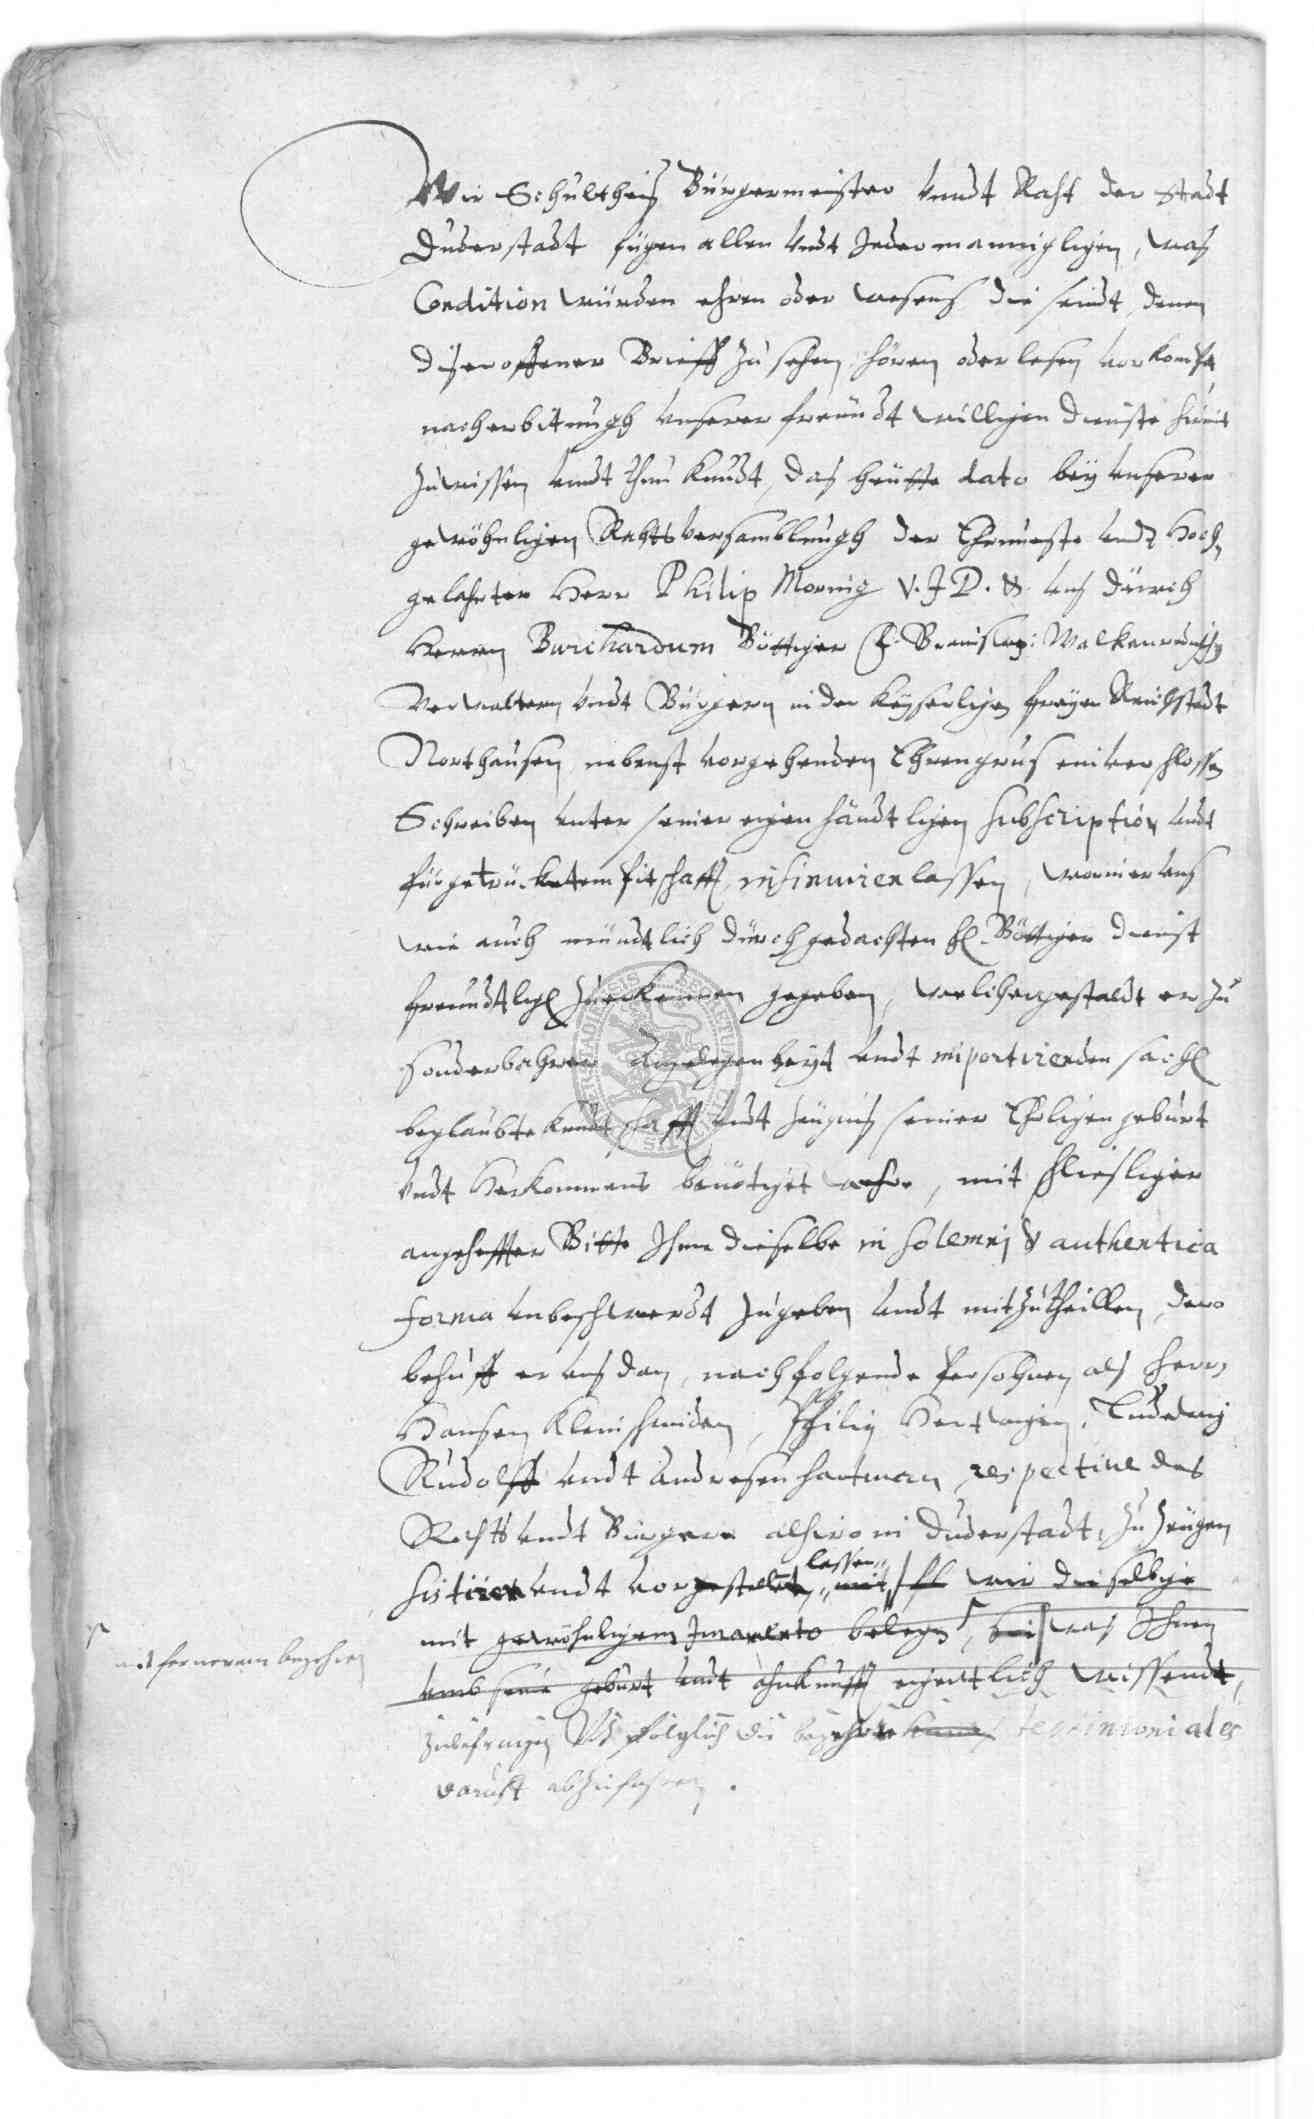 Wir Schultheis Bürgermeister undt Raht der Stadt
Duderstadt fügen allen undt Jedermannigligen, was
Condition würden ehren oder wesens die seindt, denen
diser offener Brieff zu sehen, hören oder lesen vorkompt,
nach erbitungh unserer freundt willigen dienste hiemit
zu wissen undt thun kundt, das heütte dato bey unserer
gewöhnligen Rahtsversamblungh der Ehrnveste undt Hoch
gelahrter Herr Philip Mornig V. J. D. & uns durch
Herrn Burchardum Böttiger Walkenredischen
Verwaltern undt Bürgern in der Keyserligen freyen Reichstadt
Northausen, nebenst vorgehenden Ehrengrus ein verschlossen
Schreiben unter seiner eigenhändtligen subscription undt
fürgetrücketem pitschafft, insinuiren lassen, worin er uns
wie auch mündtlich durch gedachten H. Böttiger dienst
freundtlich zu erkennen gegeben, welchergestaldt er zu
sonderbahrer angelegenheyt undt importirenden sachen
beglaubte kundtschafft undt zeugnis seiner Ehligen geburt
undt Herkommens benötiget wehre, mit fliesliger
angeheffter Bitte Ihme dieselbe in solemnj & authentica
forma unbeschwerdt zugeben undt mitzutheillen, dero
behuff er uns dan, nachfolgende Persohnen als Herrn
Hansen Kleinschmiden, Philip Hertwigen, Ludewig
Rudolff undt Andresen Hartman, respective des
Rahts undt Bürgere alhiro in Duderstadt, zu Zeügen
sistiren undt vorgestellet, lassen mit, wir dieselbige
mit gewöhnligem Juramento belegen, was Ihnen
mit fernerem begehren
umb seine geburt undt ahnkunfft eigentlich wissendt,
zubefragen undt folglich die begehrte testimoniales
darauff abzufassen.